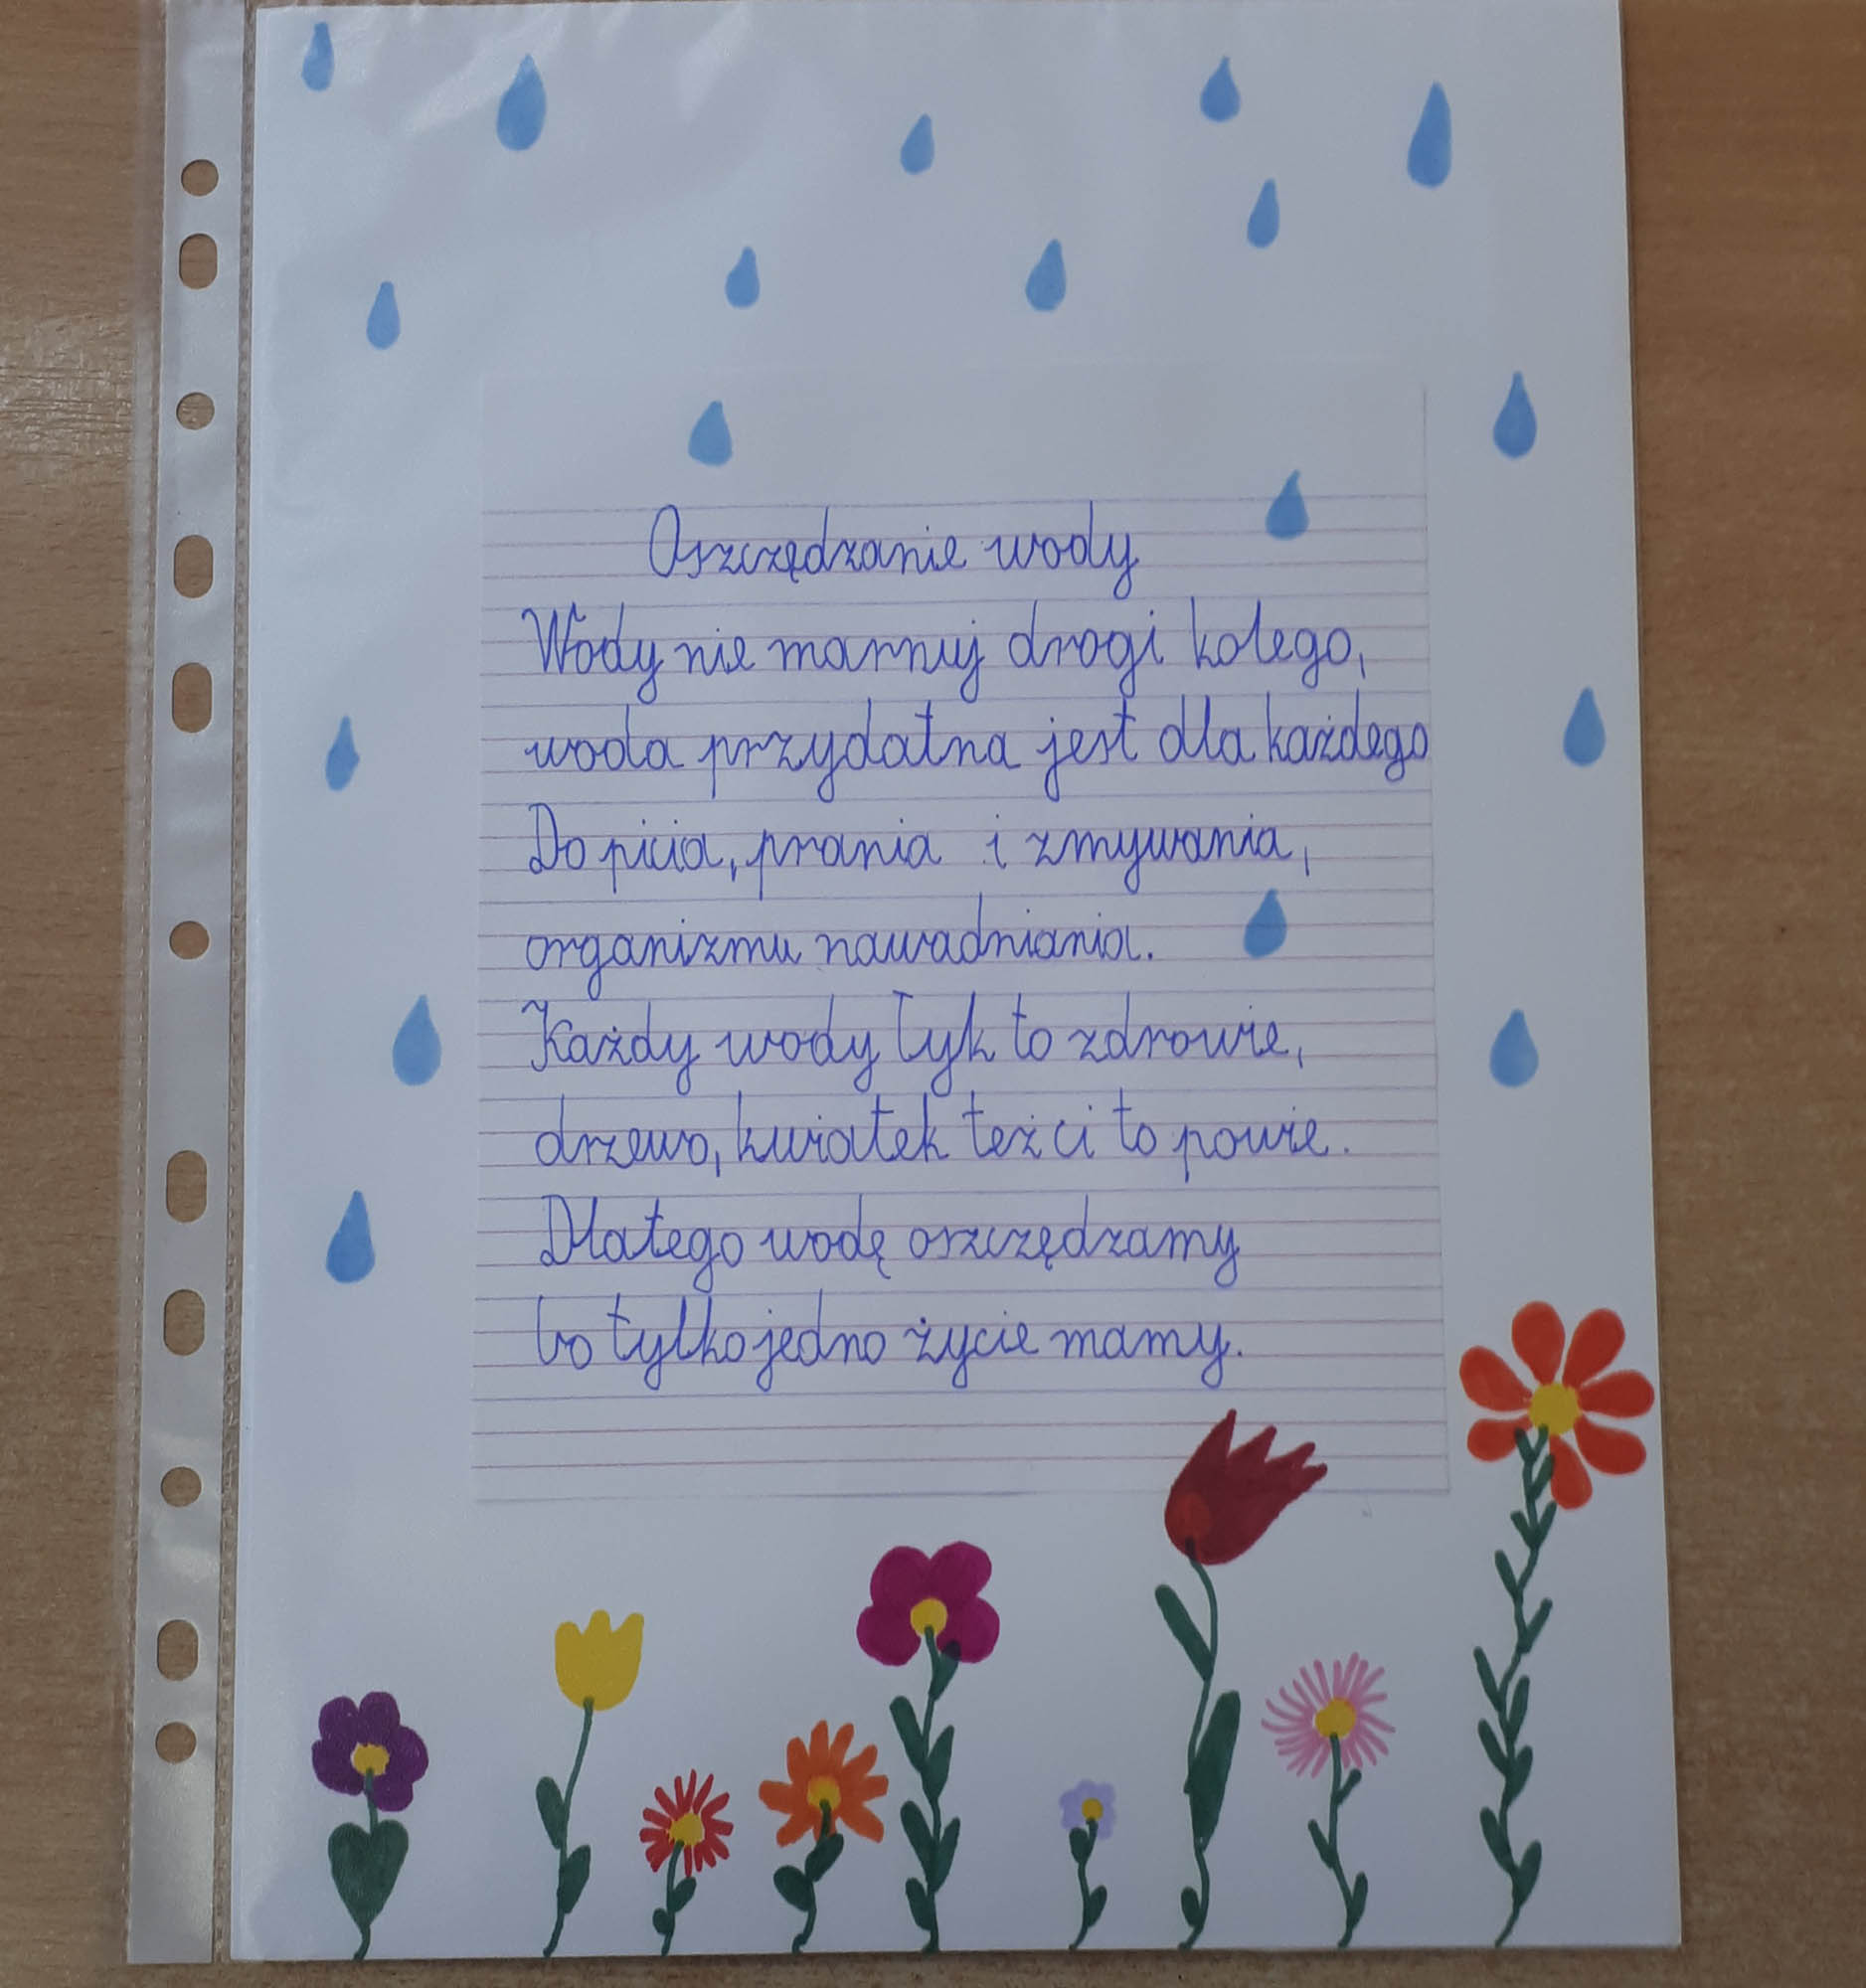 Oszczędzanie wody
Wody nie marnuj drogi kolego,
woda przydatna jest dla każdego
Do picia, prania i zmywania,
organizmu nawadniania.
Każdy wody łyk to zdrowie,
drzewo, kwiatek też ci to powie.
Dlatego wodę oszczędzamy
bo tylko jedno życie mamy.